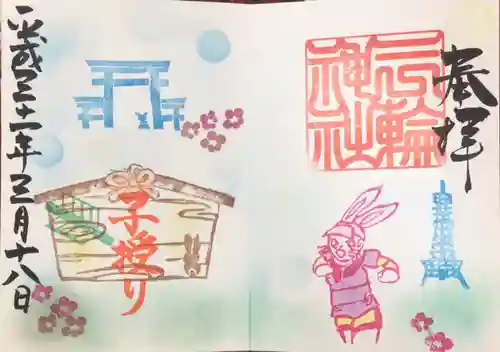 奉拝
三輪
神社
子授け
平成三十一年三月十八日